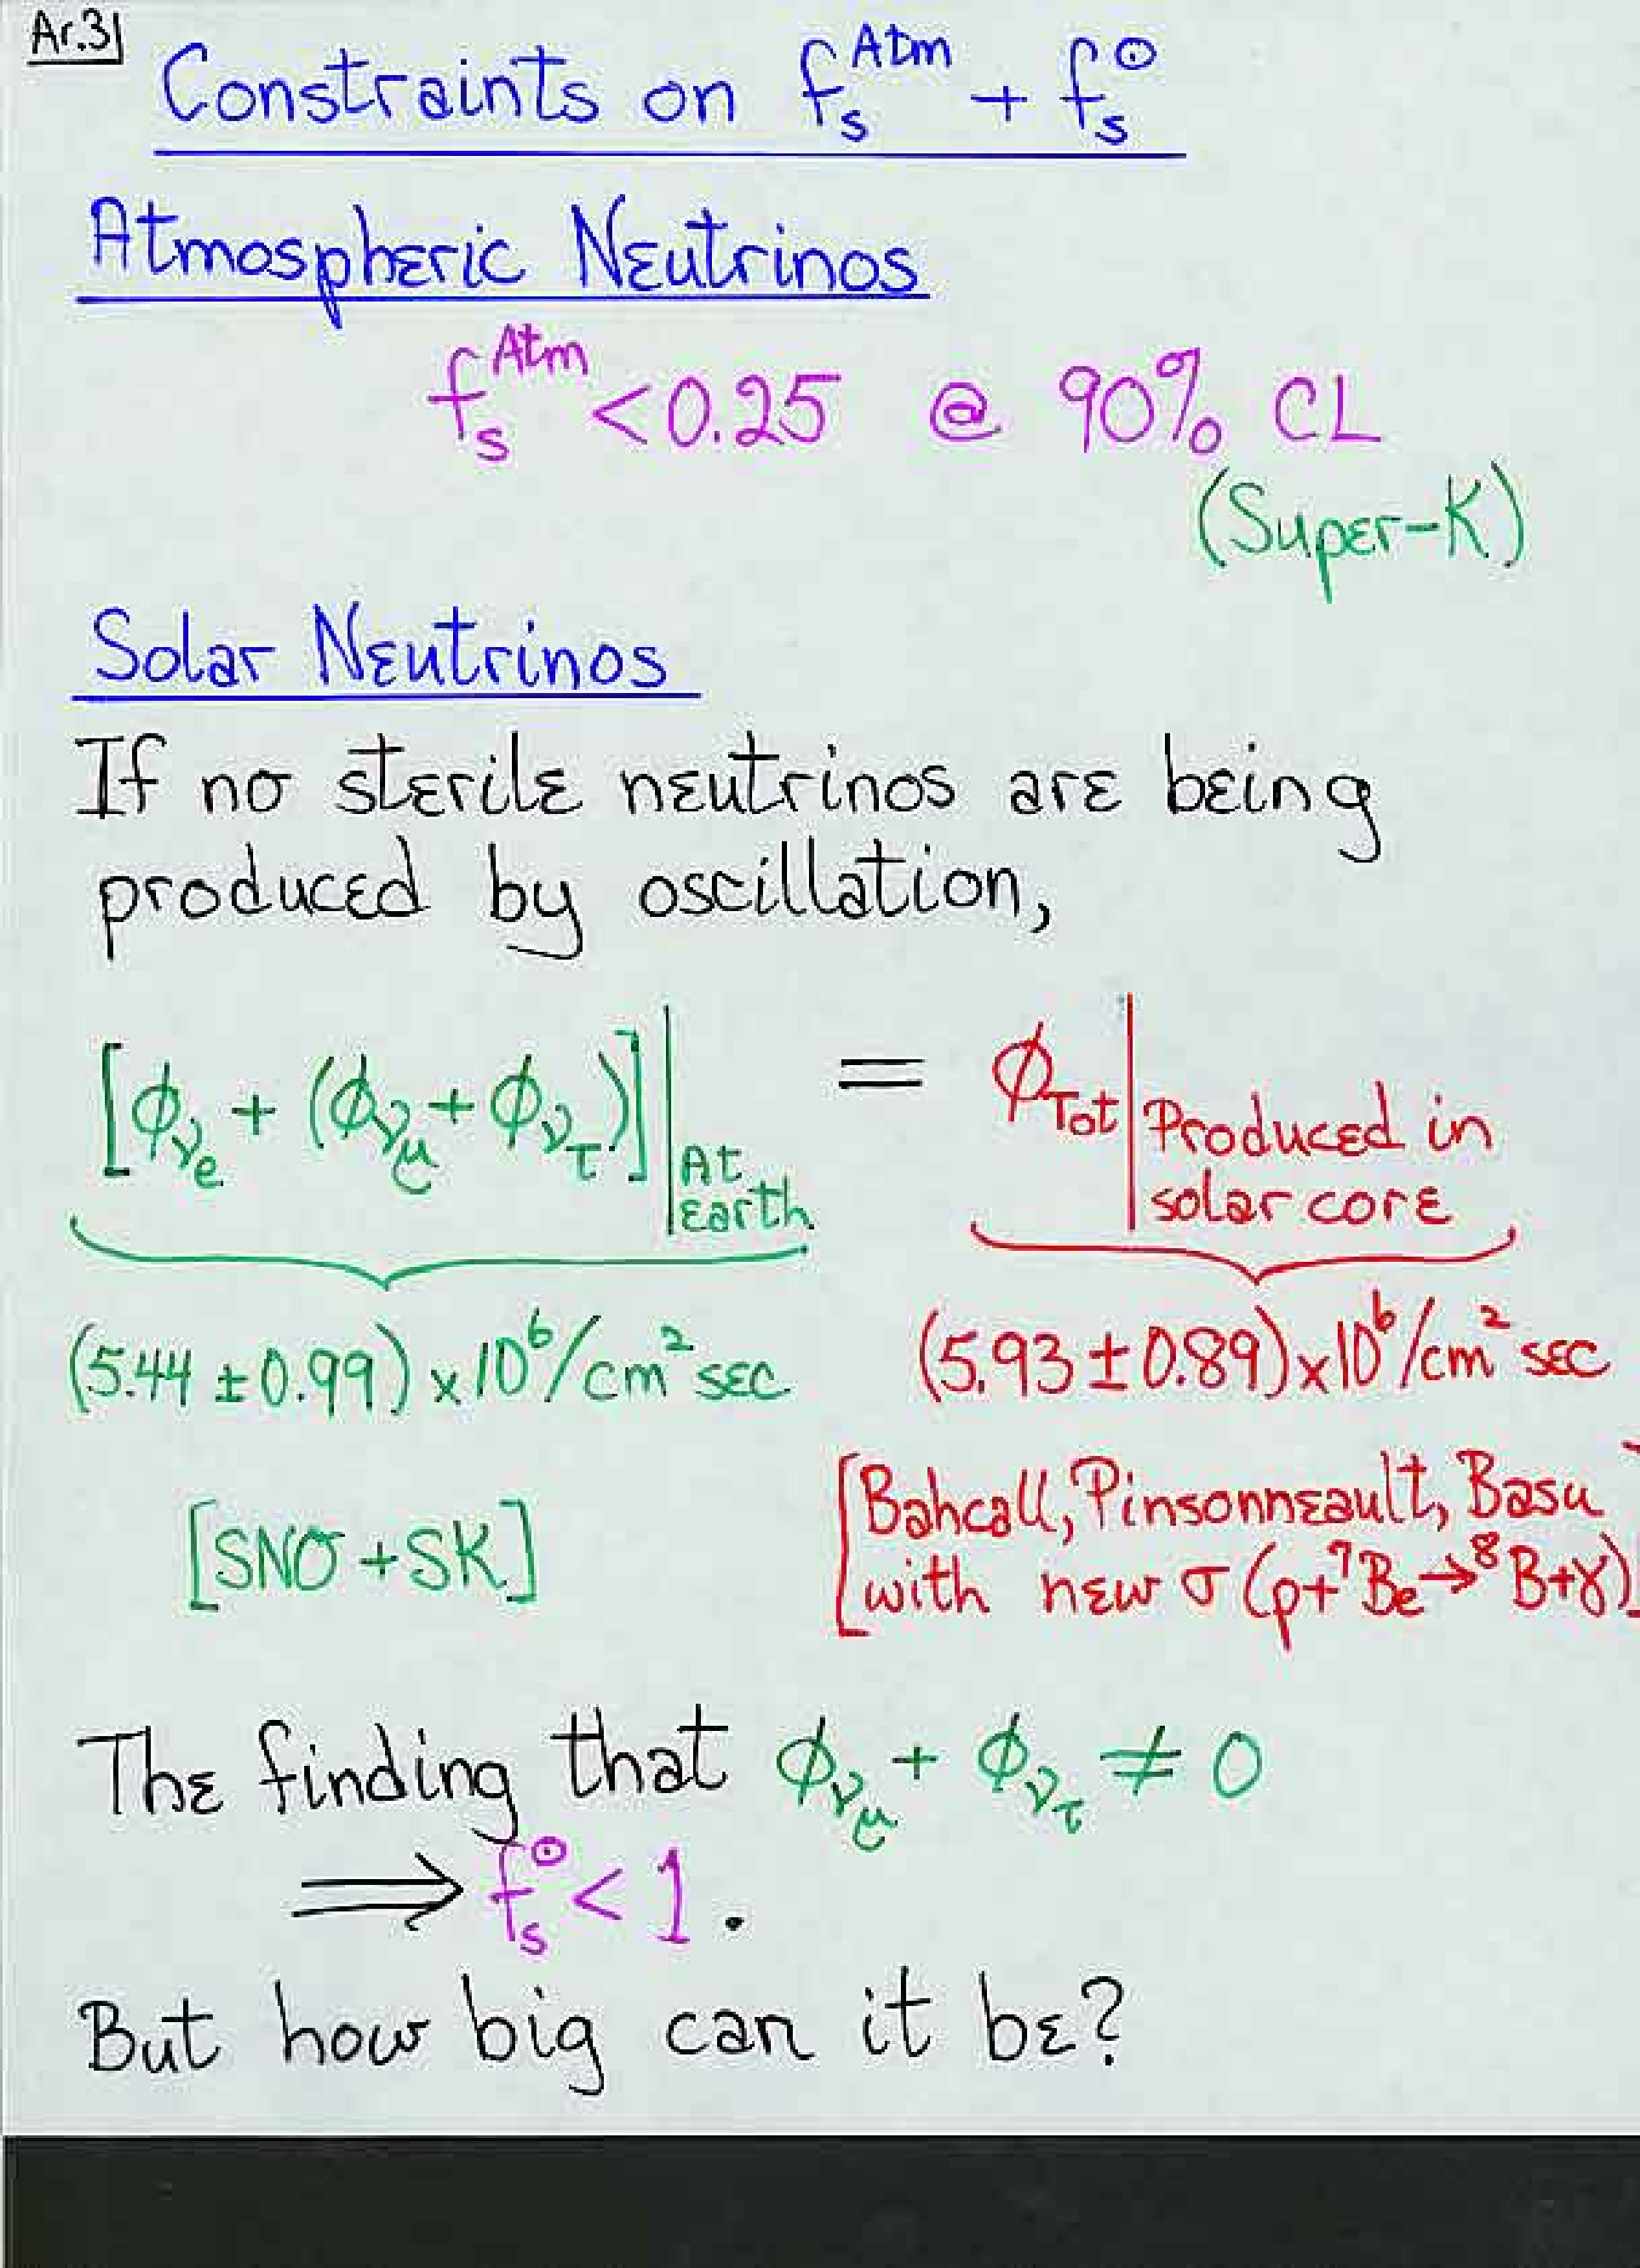 Ar.3
Constraints on f_s^Atm + f_s^⊙
Atmospheric Neutrinos
f_s^Atm < 0.25 @ 90% CL
(Super-K)
Solar Neutrinos
If no sterile neutrinos are being
produced by oscillation,
[ϕ_νe + (ϕ_νμ + ϕ_ντ)]|At earth = ϕ_Tot|Produced in solar core
(5.44 ± 0.99) × 10^6/cm² sec (5.93 ± 0.89) × 10^6/cm² sec
[SNO + SK] [Bahcall, Pinsonneault, Basu
with new σ(p+⁷Be→⁸B+γ)]
The finding that ϕ_νμ + ϕ_ντ ≠ 0
⟹ f_s^⊙ < 1.
But how big can it be?